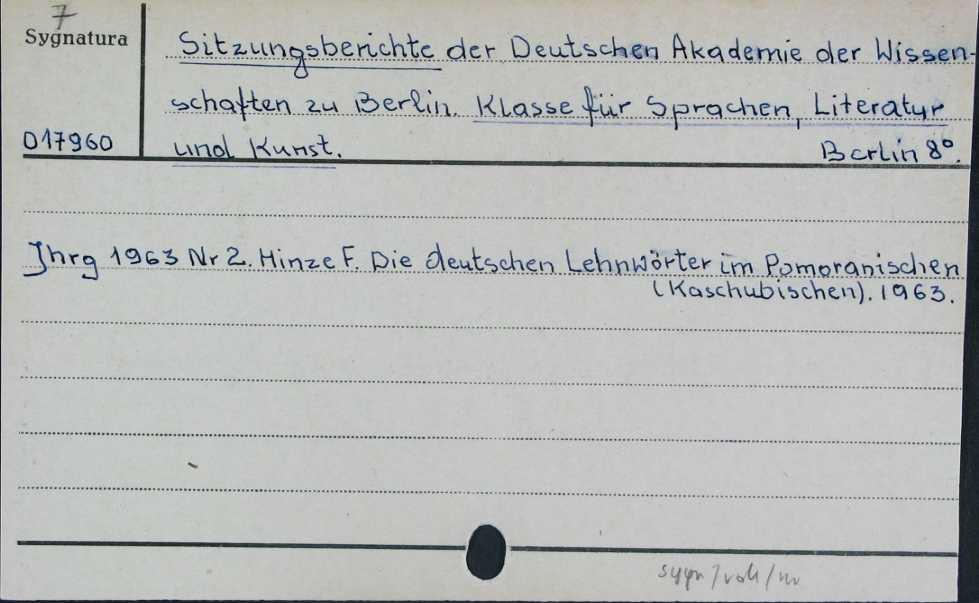 7
Sygnatura
Sitzungsberichte der Deutschen Akademie der Wissen-
schaften zu Berlin. Klasse für Sprachen, Literatur
017960
und Kunst. Berlin 8°.
Jhrg 1963 Nr 2. Hinze F. Die deutschen Lehnwörter im Pomoranischen
(Kaschubischen). 1963.
sygn/vol/nr